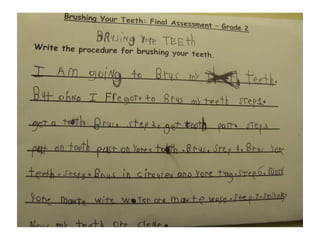 Brushing Your Teeth: Final Assessment – Grade 2
BRUSING YORE TEETH
Write the procedure for brushing your teeth.
I AM goiNg to Brus my teeth.
But ohNo I FRegot to Brus my teeth step1.
get a tooth Brus. step 2. get tooth past. step3
put on tooth past on yore tooth. Brus. Step 4. Brus yor
teeth. step5. Brus in circyles and yore tug. step6.
yore mawte wite woter and mawte wase. Step.7. smile.
Now my teeth are clene.